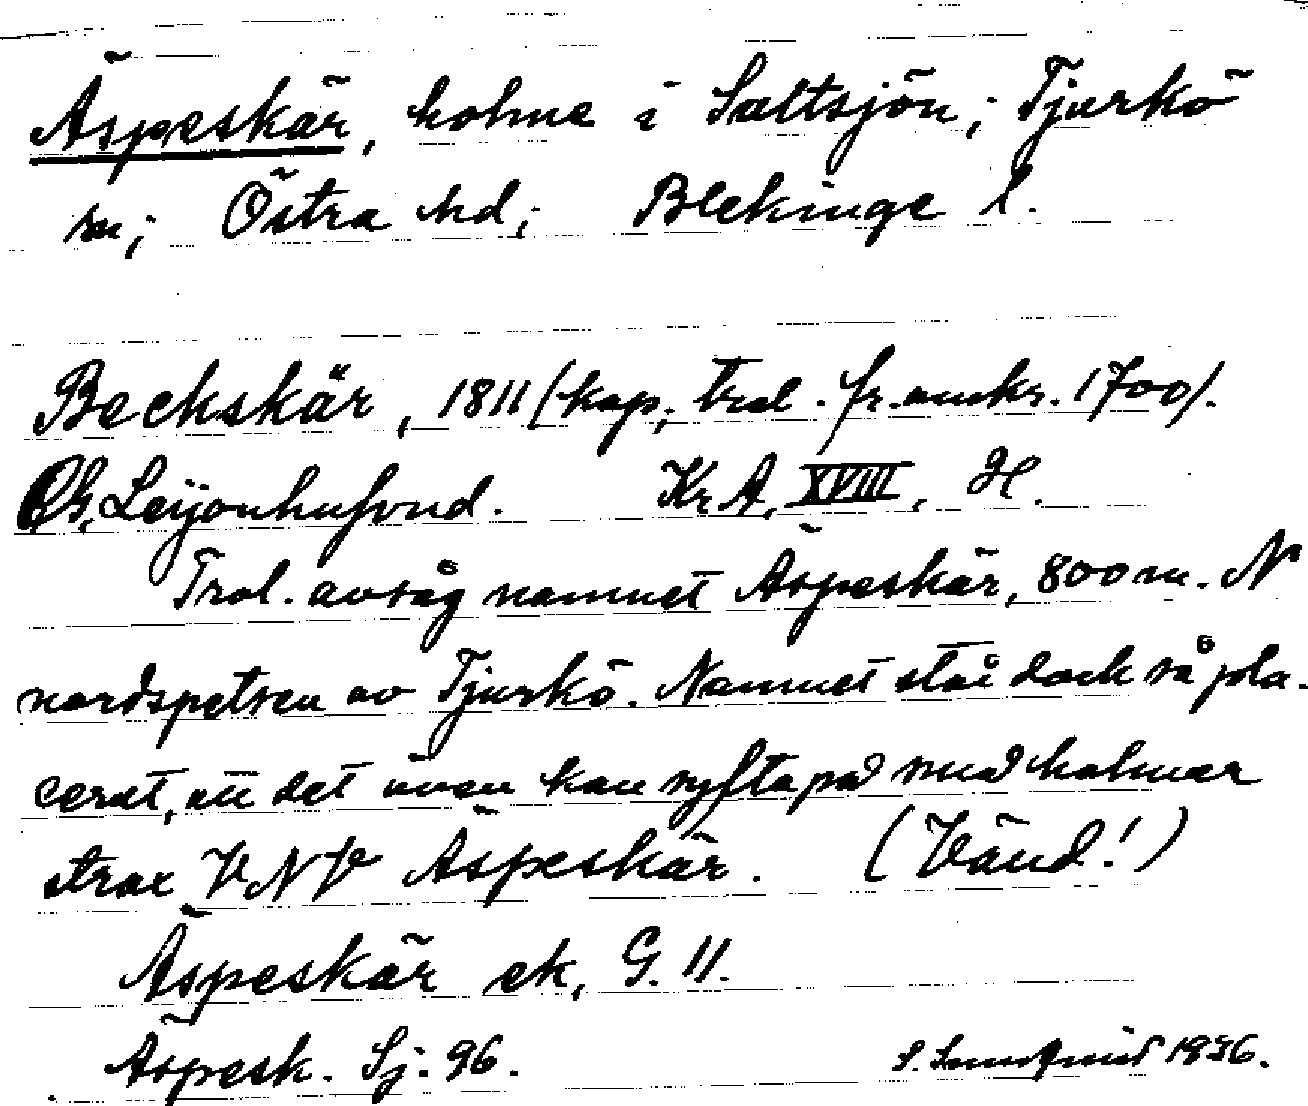 Äspeskär, holme i Saltsjön; Tjurkö
sn; Östra hd; Blekinge l.
Beckskär, 1811 (kop; trol. fr. omkr. 1700).
Leijonhufvud. Kr A, XVIII, H.
Trol. avsåg namnet Äspeskär, 800 m. N
nordspetsen av Tjurkö. Namnet står dock så pla-
cerat, att det även kan syfta på små holmar
strax VNV Äspeskär. (Vänd!)
Äspeskär ek, G. 11.
Äspesk. Sj. 96.